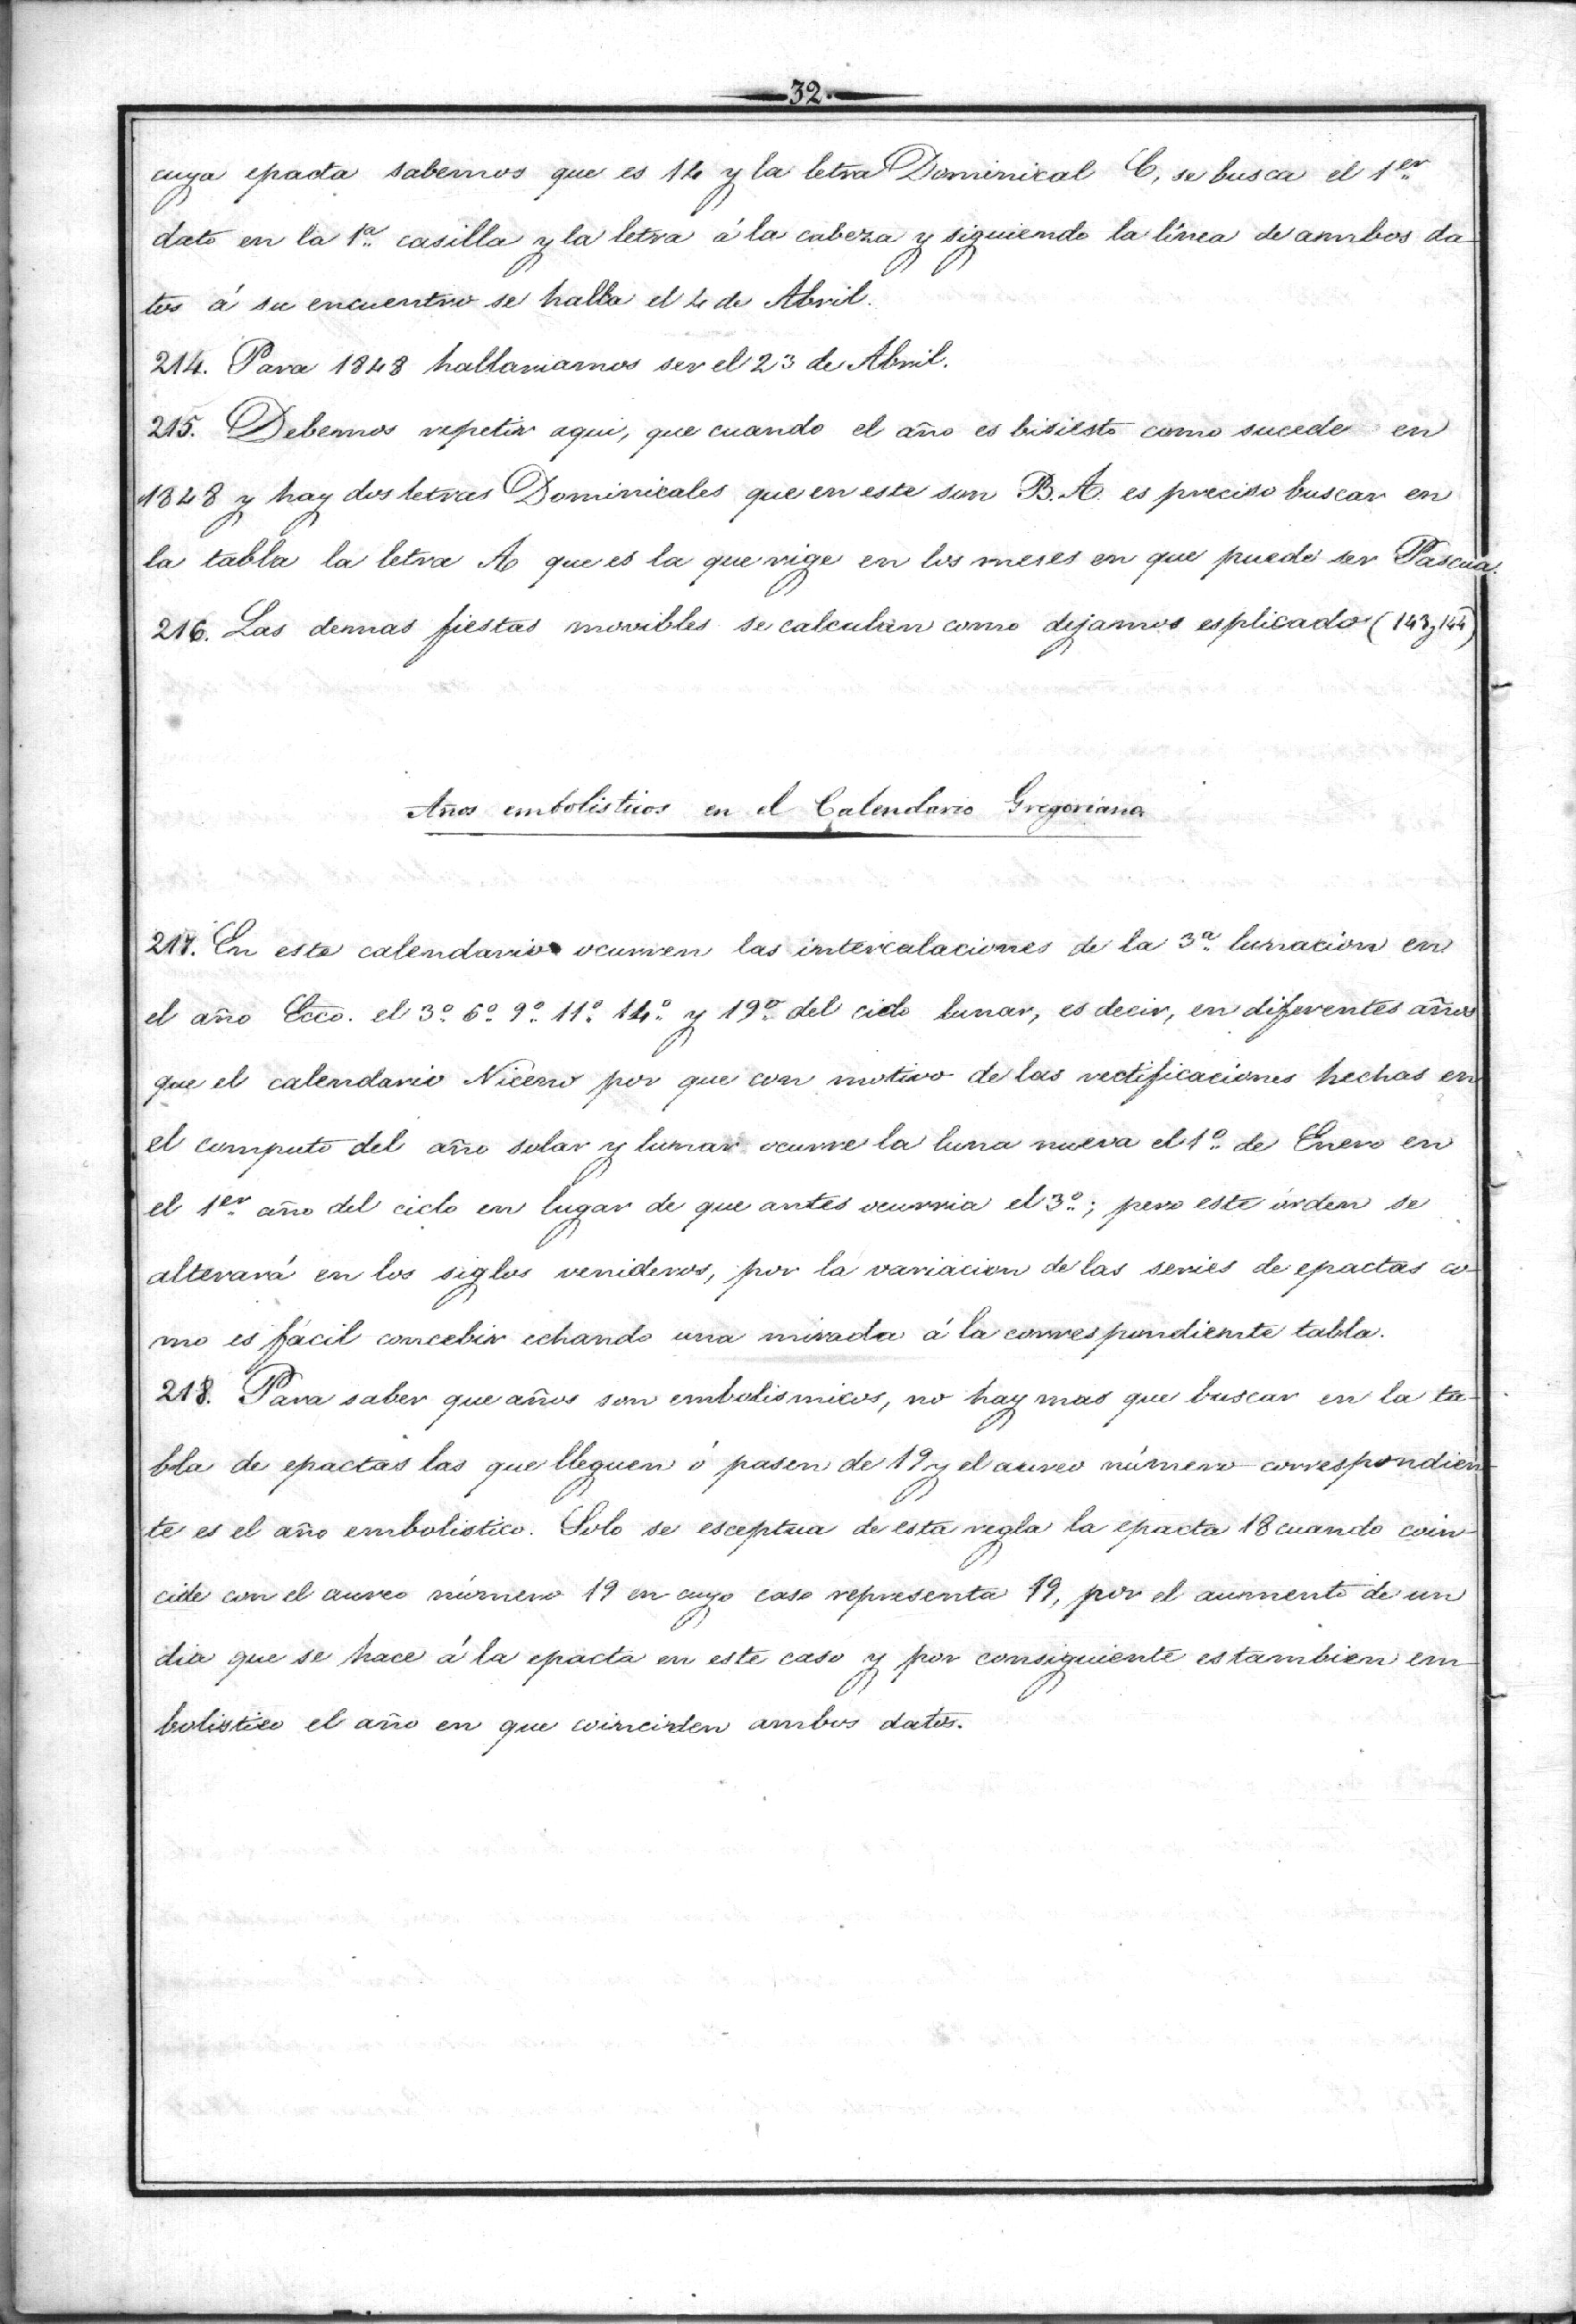 32.
cuya epacta sabemos que es 14 y la letra Dominical C, se busca el 1er
dato en la 1a casilla y la letra á la cabeza y siguiendo la línea de ambos da-
tos á su encuentro se halla el 4 de Abril.
214. Para 1848 hallariamos ser el 23 de Abril.
215. Debemos repetir aqui, que cuando el año es bisiesto como sucede en
1848 y hay dos letras Dominicales que en este son B. A. es preciso buscar en
la tabla la letra A que es la que rige en los meses en que puede ser Pascua.
216. Las demas fiestas movibles se calculan como dejamos esplicado (143 y 144)
Años embolisticos en el Calendario Gregoriano
217. En este calendario ocurren las intercalaciones de la 3a lunacion en
el año Ecco. el 3o 6o 9o 11o 14o y 19o del ciclo lunar, es decir, en diferentes años
que el calendario Niceno por que con motivo de las rectificaciones hechas en
el computo del año solar y lunar ocurre la luna nueva el 1o de Enero en
el 1er año del ciclo en lugar de que antes ocurria el 3o; pero este órden se
alterará en los siglos venideros, por la variacion de las series de epactas co-
mo es fácil concebir echando una mirada á la correspondiente tabla.
218. Para saber que años son embolismicos, no hay mas que buscar en la ta-
bla de epactas las que lleguen ó pasen de 19 y el aureo número correspondien-
te es el año embolistico. Solo se esceptua de esta regla la epacta 18 cuando coin-
cide con el aureo número 19 en cuyo caso representa 19, por el aumento de un
dia que se hace á la epacta en este caso y por consiguiente es tambien em-
bolistico el año en que coinciden ambos datos.